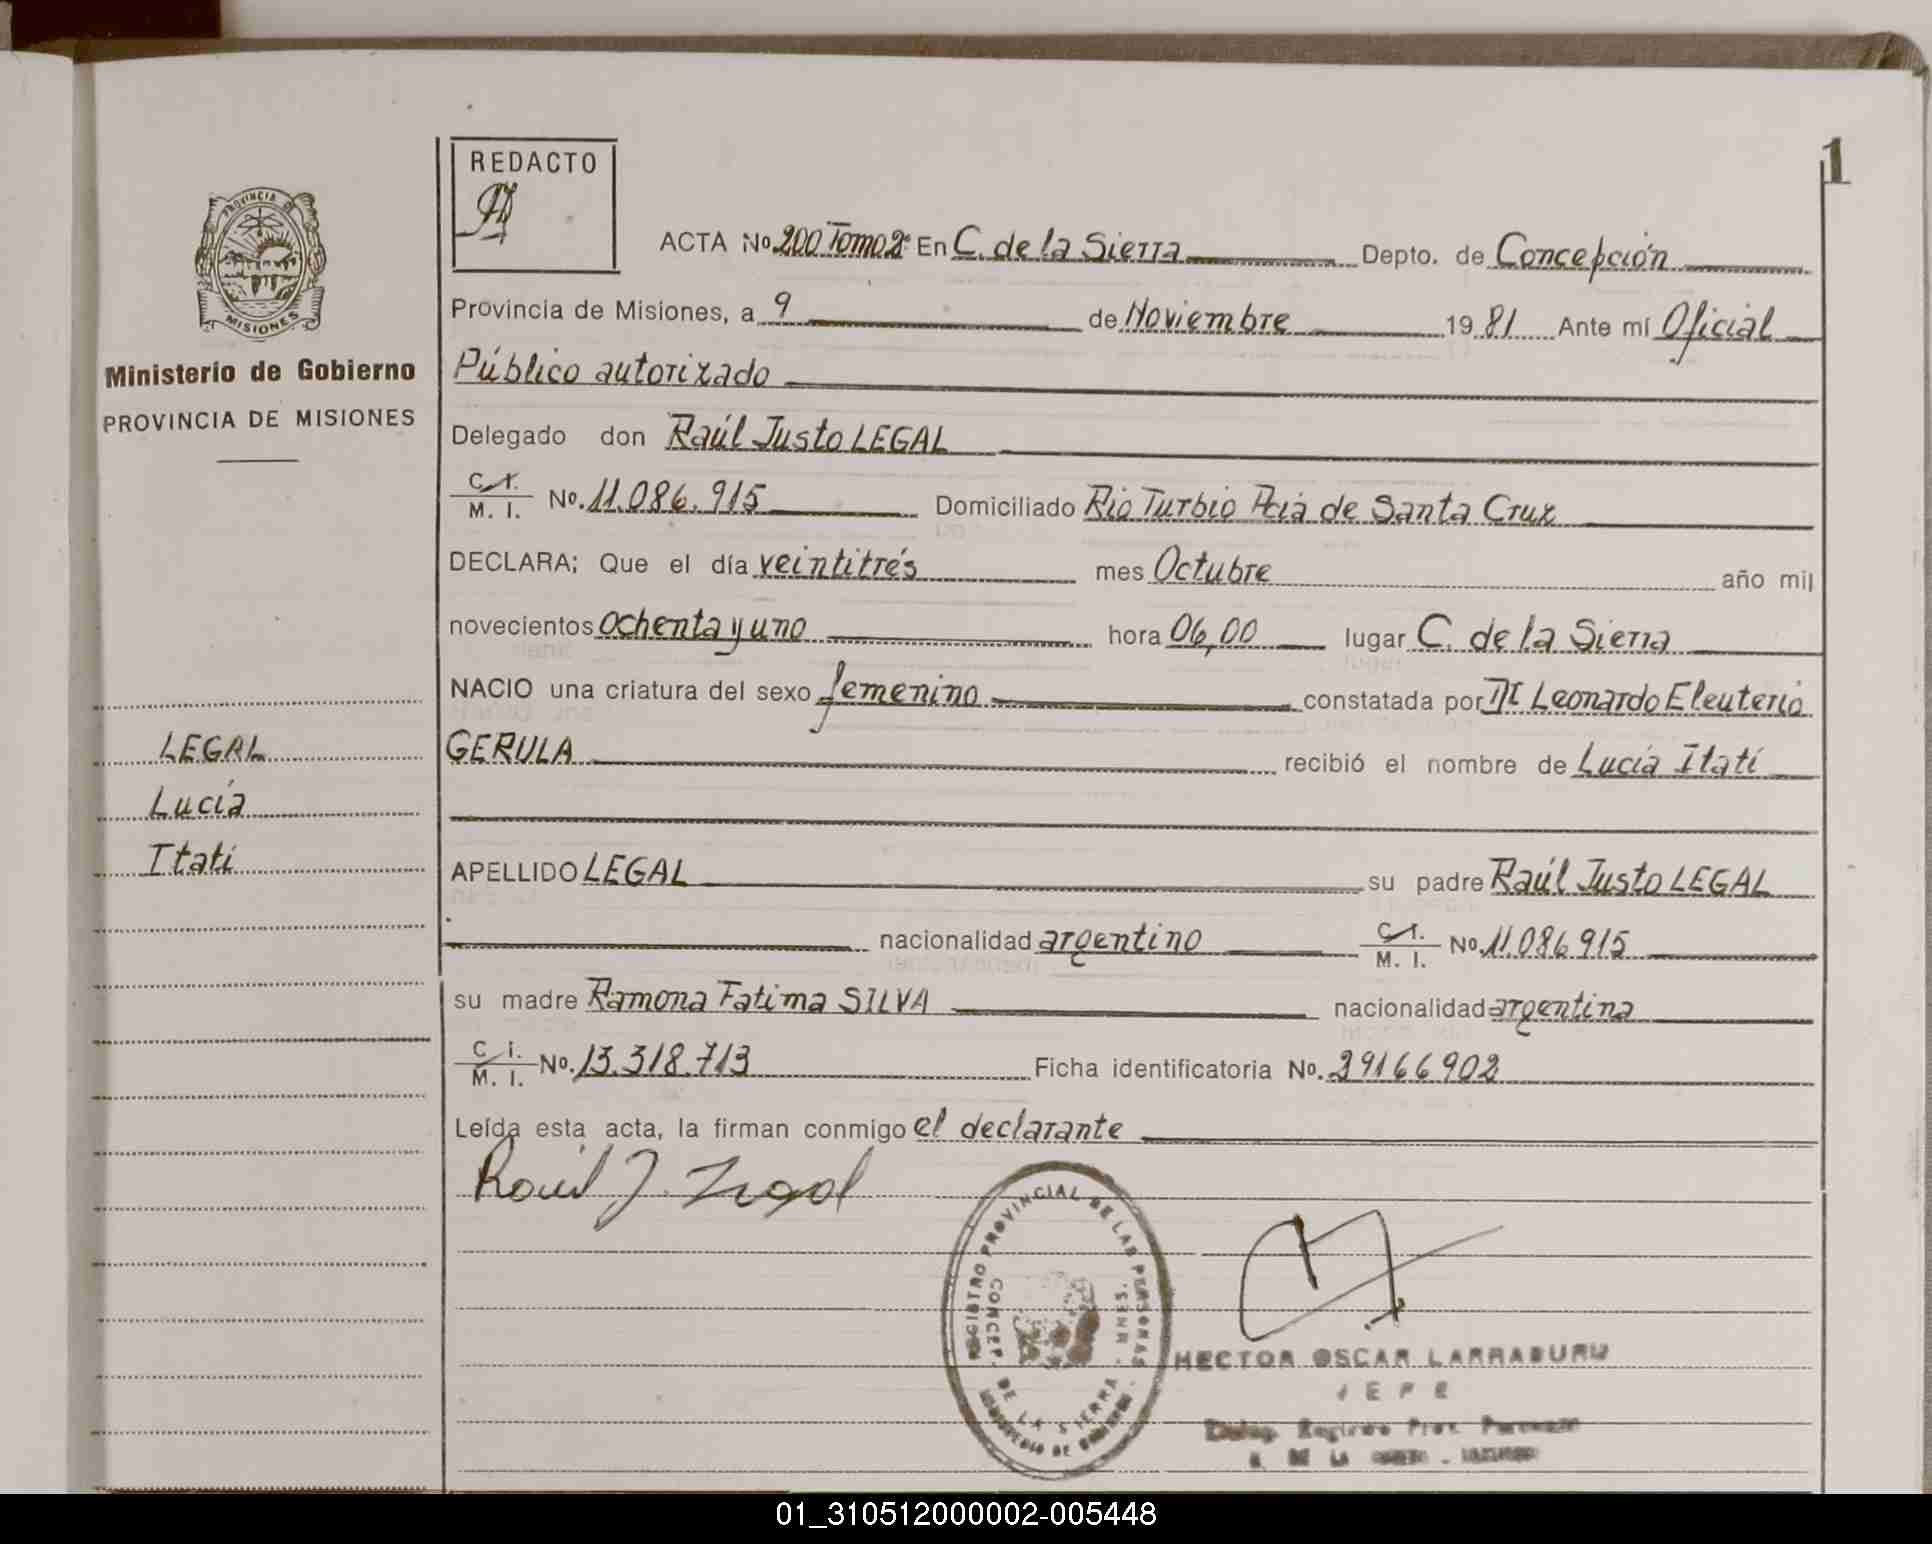 1
REDACTO
PROVINCIA DE
MISIONES
Ministerio de Gobierno
PROVINCIA DE MISIONES
LEGAL
Lucía
Itatí
ACTA No 200 Tomo 2º En C. de la Sierra Depto. de Concepción
Provincia de Misiones, a 9 de Noviembre 19 81 Ante mí Oficial
Público autorizado
Delegado don Raúl Justo LEGAL
C. I.
M. I. No. 11.086.915 Domiciliado Rio Turbio Pcia de Santa Cruz
DECLARA; Que el día veintitrés mes Octubre año mil
novecientos ochenta y uno hora 06,00 lugar C. de la Sierra
NACIO una criatura del sexo femenino constatada por Dr Leonardo Eleuterio
GERULA recibió el nombre de Lucía Itatí
APELLIDO LEGAL su padre Raúl Justo LEGAL
nacionalidad argentino C. I.
M. I. No. 11.086.915
su madre Ramona Fatima SILVA nacionalidad argentina
C. I.
M. I. No. 13.318.713 Ficha identificatoria No. 29166902
Leída esta acta, la firman conmigo el declarante
Raúl J. Legal
REGISTRO PROVINCIAL DE LAS PERSONAS
CONCEP. DE LA SIERRA
HECTOR OSCAR LARRABURU
JEFE
Deleg. Registro Prov. Personas
01_310512000002-005448